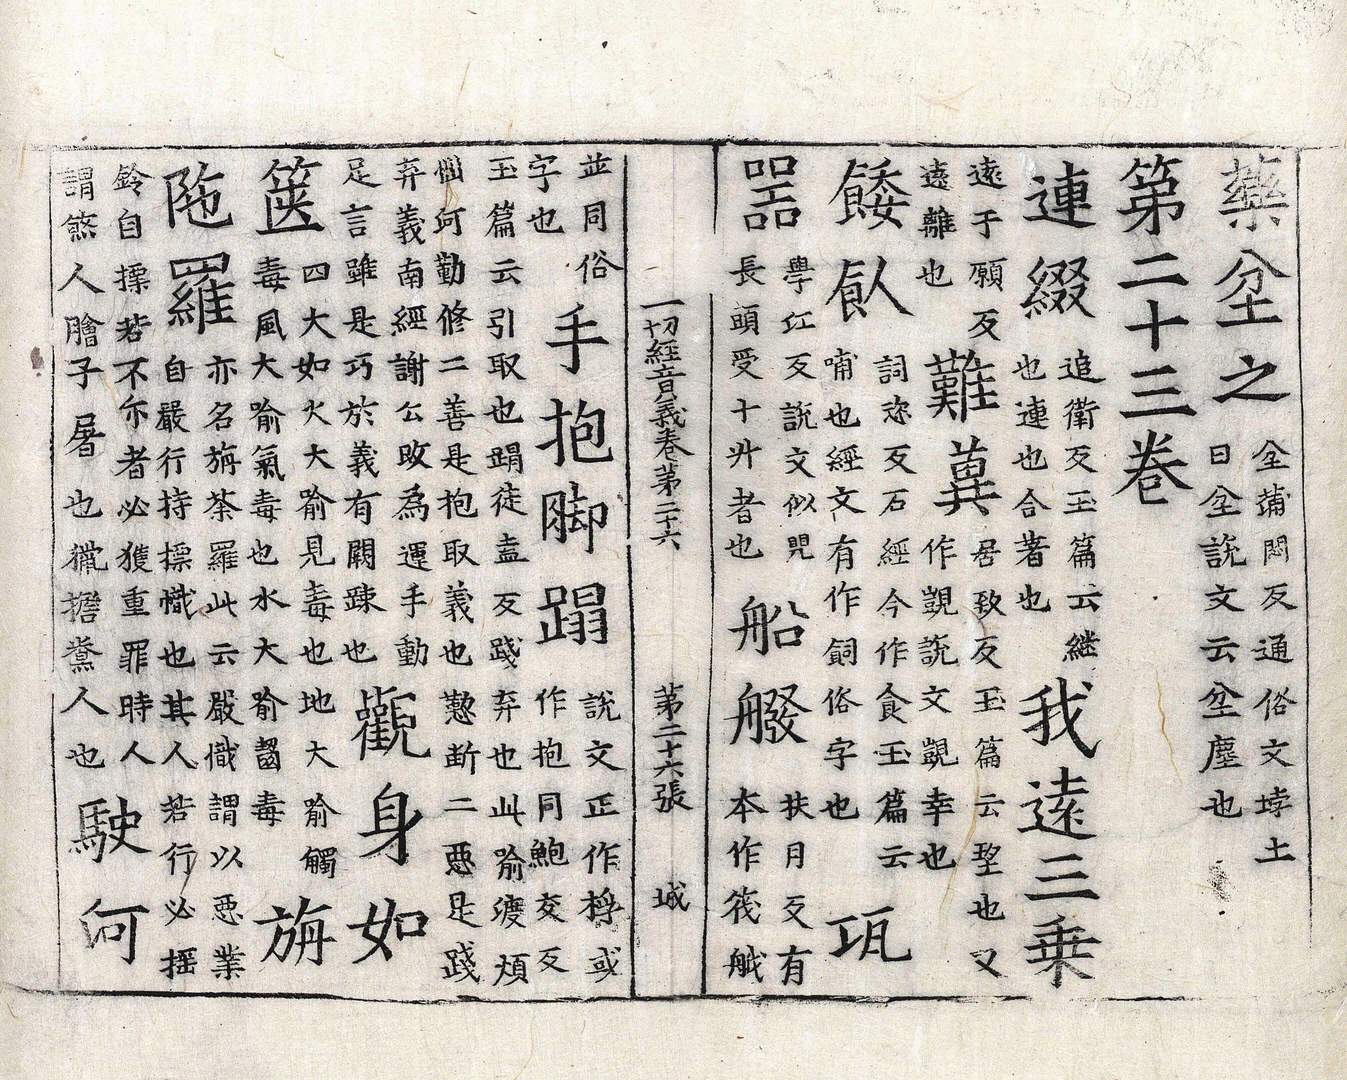 藥坌之
坌蒲悶反通俗文埻土
曰坌説文云坌塵也
第二十三卷
連綴
追衛反玉篇云継
也連也合著也
我遠三乗
遠于願反
遠離也
難冀
居致反玉篇云朢也又
作覬説文覬幸也
餧飤
詞恣反石經今作食玉篇云
哺也經文有作飼俗字也
瓨
器
學江反説文似甖
長頭受十升者也
船
扶月反有
本作筏
一切經音義卷第二十六 第二十六張 城
並同俗
字也
手抱脚蹋
説文正作捊或
作抱同鮑交反
玉篇云引取也蹋徒盍反踐弃也此喻癈煩
惱何勤修二善是抱取義也懃断二惡是踐
弃義南經謝公改為運手動
足言雖是巧於義有闕踈也
觀身如
篋
四大如火大喻見毒也地大喻觸
毒風大喻氣毒也水大喻齧毒
旃
陁羅
亦名旃荼羅此云嚴幟謂以惡業
自嚴行持摽幟也其人若行必揺
鈴自摽若不尒者必獲重罪時人
謂煞人膾子屠也獵擔糞人也
駛河